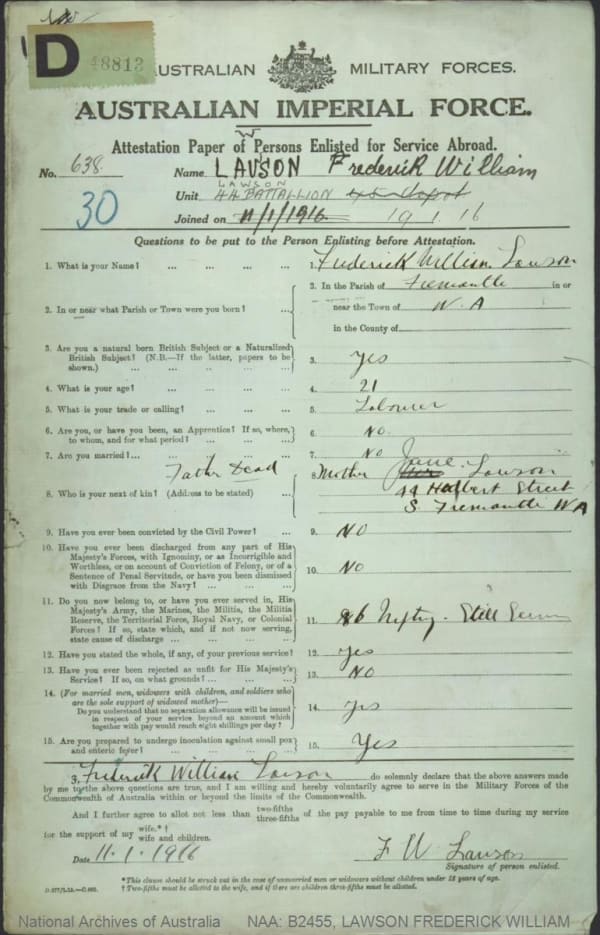 D 48813
AUSTRALIAN MILITARY FORCES.
AUSTRALIAN IMPERIAL FORCE.
Attestation Paper of Persons Enlisted for Service Abroad.
W
No. 638. Name LAUSON Frederick William
LAWSON
30 Unit 44 BATTALLION
Joined on 11/1/1916 19 1 16
Questions to be put to the Person Enlisting before Attestation.
1. What is your Name? ... ... ... ... 1. Frederick William Lawson
2. In or near what Parish or Town were you born? ... 2. In the Parish of Fremantle in or
near the Town of W.A
in the County of
3. Are you a natural born British Subject or a Naturalized
British Subject? (N.B.—If the latter, papers to be
shown.) ... ... ... ... 3. Yes
4. What is your age? ... ... ... ... 4. 21
5. What is your trade or calling? ... ... ... 5. Labourer
6. Are you, or have you been, an Apprentice? If so, where,
to whom, and for what period? ... ... ... 6. NO
7. Are you married? ... ... ... ... 7. NO
Father Dead 8. Mother Jane Lawson
8. Who is your next of kin? (Address to be stated) ... 44 Street
S. Fremantle WA
9. Have you ever been convicted by the Civil Power? ... 9. NO
10. Have you ever been discharged from any part of His
Majesty's Forces, with Ignominy, or as Incorrigible and
Worthless, or on account of Conviction of Felony, or of a
Sentence of Penal Servitude, or have you been dismissed
with Disgrace from the Navy? ... ... ... 10. NO
11. Do you now belong to, or have you ever served in, His
Majesty's Army, the Marines, the Militia, the Militia
Reserve, the Territorial Force, Royal Navy, or Colonial
Forces? If so, state which, and if not now serving,
state cause of discharge ... ... ... 11. 86 Still
12. Have you stated the whole, if any, of your previous service? 12. Yes
13. Have you ever been rejected as unfit for His Majesty's
Service? If so, on what grounds? ... ... ... 13. NO
14. (For married men, widowers with children, and soldiers who
are the sole support of widowed mother)—
Do you understand that no separation allowance will be issued
in respect of your service beyond an amount which
together with pay would reach eight shillings per day? 14. Yes
15. Are you prepared to undergo inoculation against small pox
and enteric fever? ... ... ... ... 15. Yes
Frederick William Lawson do solemnly declare that the above answers made
by me to the above questions are true, and I am willing and hereby voluntarily agree to serve in the Military Forces of the
Commonwealth of Australia within or beyond the limits of the Commonwealth.
And I further agree to allot not less than two-fifths three-fifths of the pay payable to me from time to time during my service
for the support of my wife.*† wife and children.
Date 11.1.1916 F W Lawson
Signature of person enlisted.
*This clause should be struck out in the case of unmarried men or widowers without children under 18 years of age.
†Two-fifths must be allotted to the wife, and if there are children three-fifths must be allotted.
National Archives of Australia NAA: B2455, LAWSON FREDERICK WILLIAM